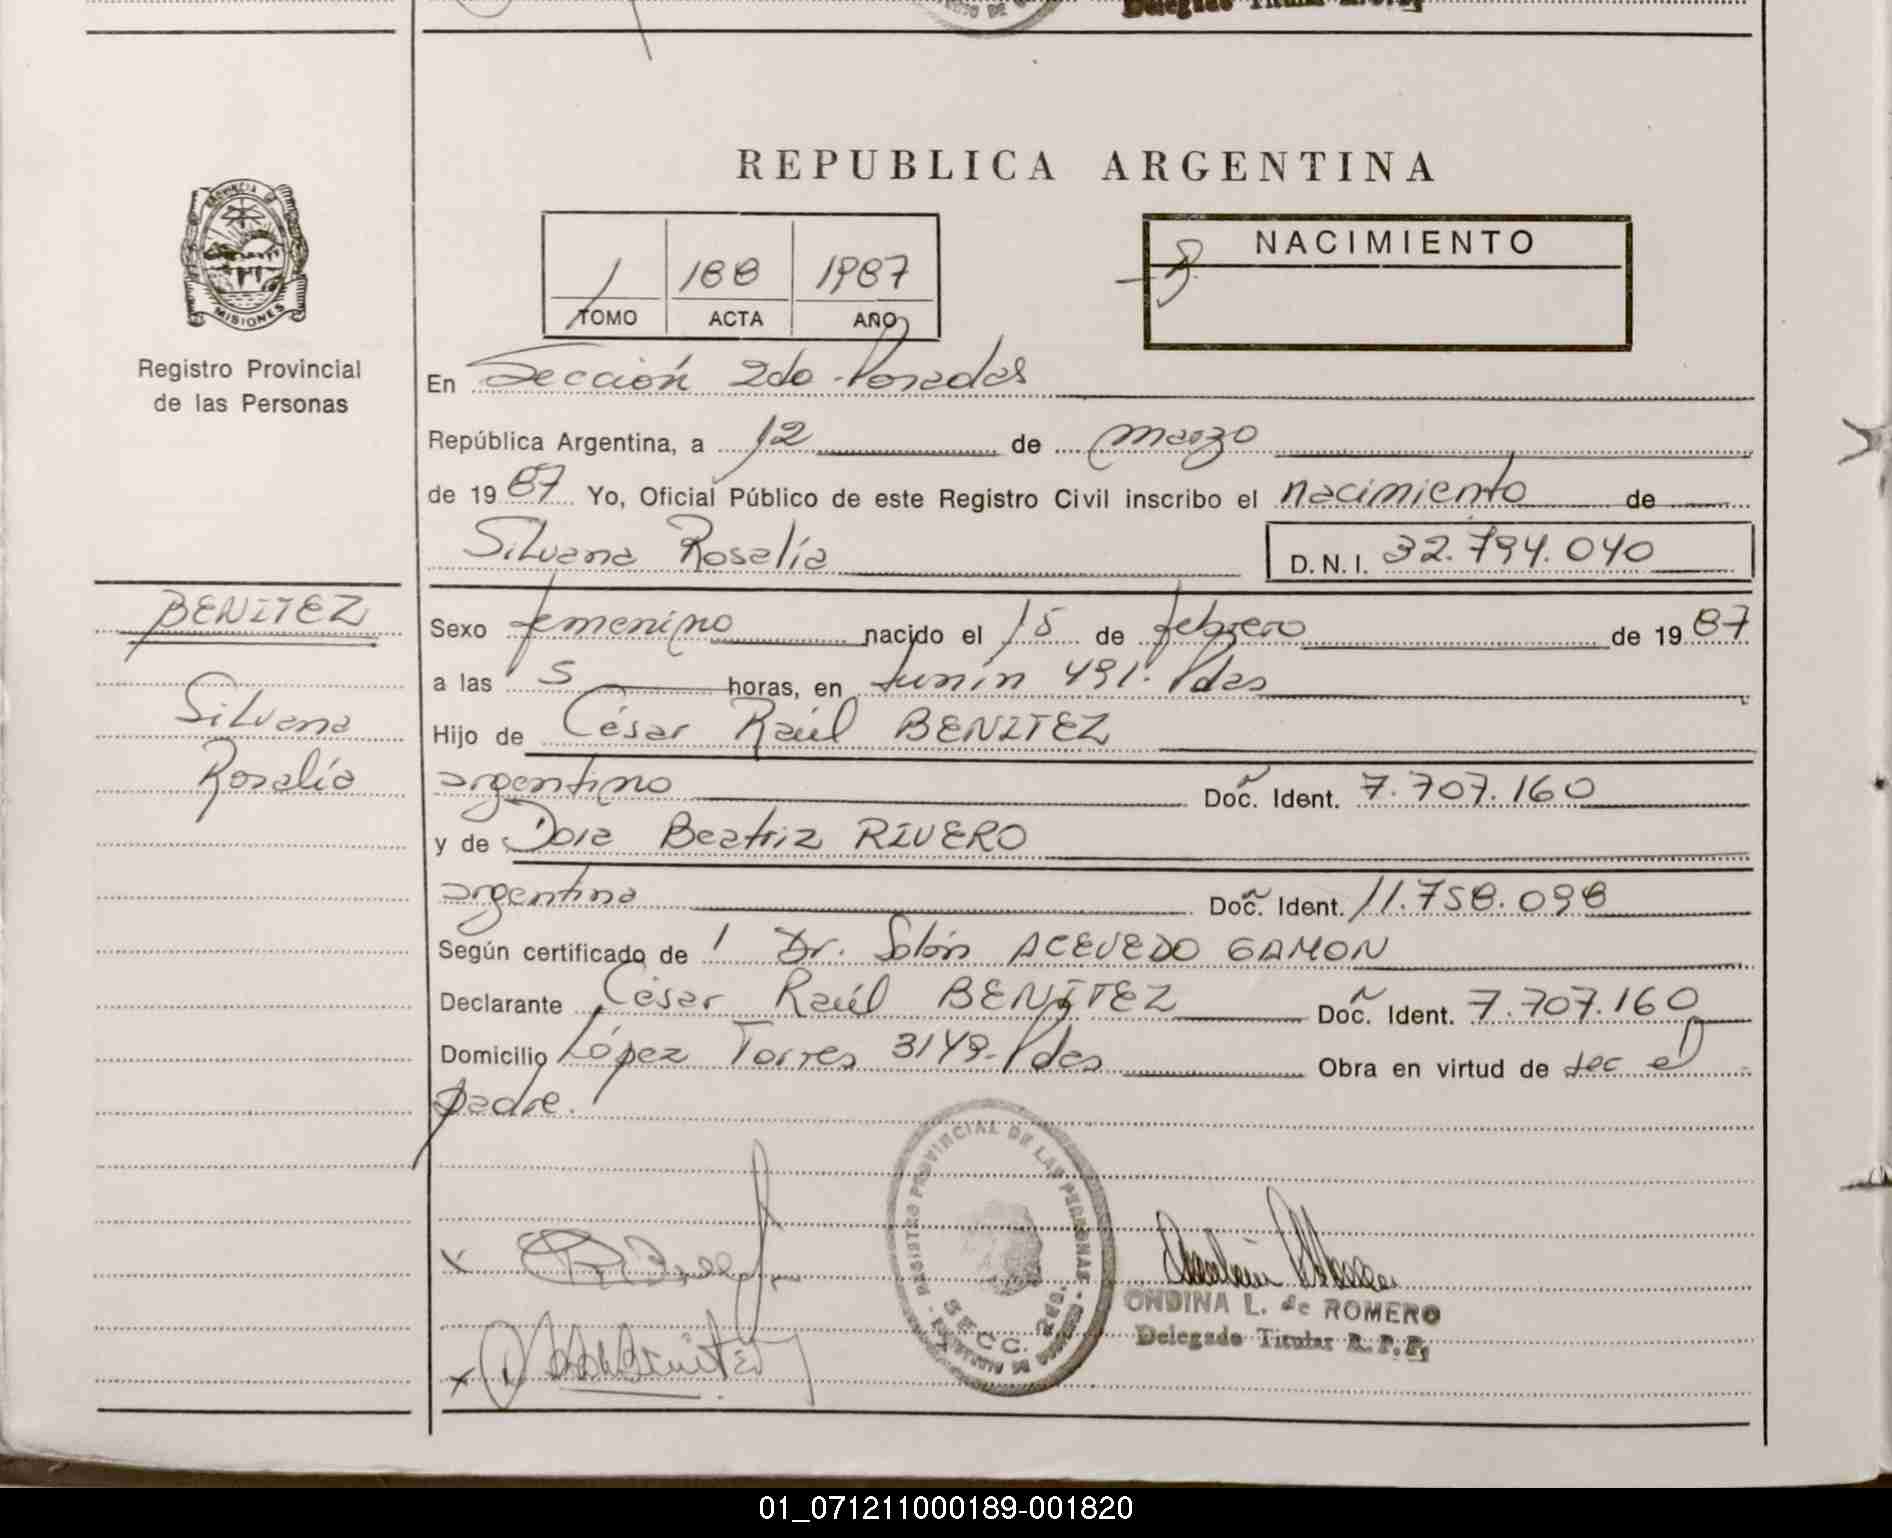 Delegado Titular R.P.P.
REPUBLICA ARGENTINA
PROVINCIA DE
MISIONES
Registro Provincial
de las Personas
1 188 1987
TOMO ACTA AÑO
NACIMIENTO
En Sección 2do - Posadas
República Argentina, a 12 de marzo
de 1987 Yo, Oficial Público de este Registro Civil inscribo el nacimiento de
Silvana Rosalía D.N.I. 32.794.040
BENITEZ
Silvana
Rosalía
Sexo femenino nacido el 15 de febrero de 1987
a las 5 horas, en Junín 491 - Pdas
Hijo de César Raúl BENITEZ
argentino Doc. Ident. 7.707.160
y de Dora Beatriz RIVERO
argentina Doc. Ident. 11.758.098
Según certificado de 1 Dr. Solón ACEVEDO GAMON
Declarante César Raúl BENITEZ Doc. Ident. 7.707.160
Domicilio López Torres 3149 - Pdas Obra en virtud de ser el
padre.
REGISTRO PROVINCIAL DE LAS PERSONAS
SECC. 2do.
ONDINA L. de ROMERO
Delegado Titular R.P.P.
01_071211000189-001820